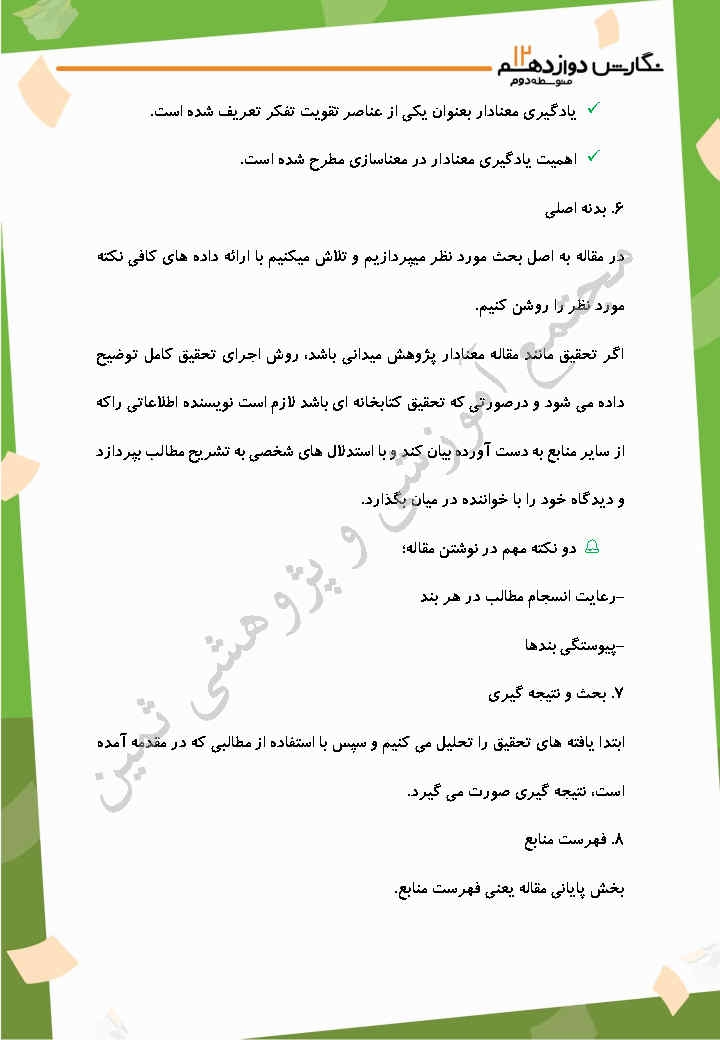 نگارش دوازدهم ۱۲
متوسطه دوم
✓ یادگیری معنادار بعنوان یکی از عناصر تقویت تفکر تعریف شده است.
✓ اهمیت یادگیری معنادار در معناسازی مطرح شده است.
۶. بدنه اصلی
در مقاله به اصل بحث مورد نظر میپردازیم و تلاش میکنیم با ارائه داده های کافی نکته
مورد نظر را روشن کنیم.
اگر تحقیق مانند مقاله معنادار پژوهش میدانی باشد، روش اجرای تحقیق کامل توضیح
داده می شود و درصورتی که تحقیق کتابخانه ای باشد لازم است نویسنده اطلاعاتی راکه
از سایر منابع به دست آورده بیان کند و با استدلال های شخصی به تشریح مطالب بپردازد
و دیدگاه خود را با خواننده در میان بگذارد.
دو نکته مهم در نوشتن مقاله؛
–رعایت انسجام مطالب در هر بند
–پیوستگی بندها
۷. بحث و نتیجه گیری
ابتدا یافته های تحقیق را تحلیل می کنیم و سپس با استفاده از مطالبی که در مقدمه آمده
است، نتیجه گیری صورت می گیرد.
۸. فهرست منابع
بخش پایانی مقاله یعنی فهرست منابع.
مجتمع آموزشی و پژوهشی ثمین